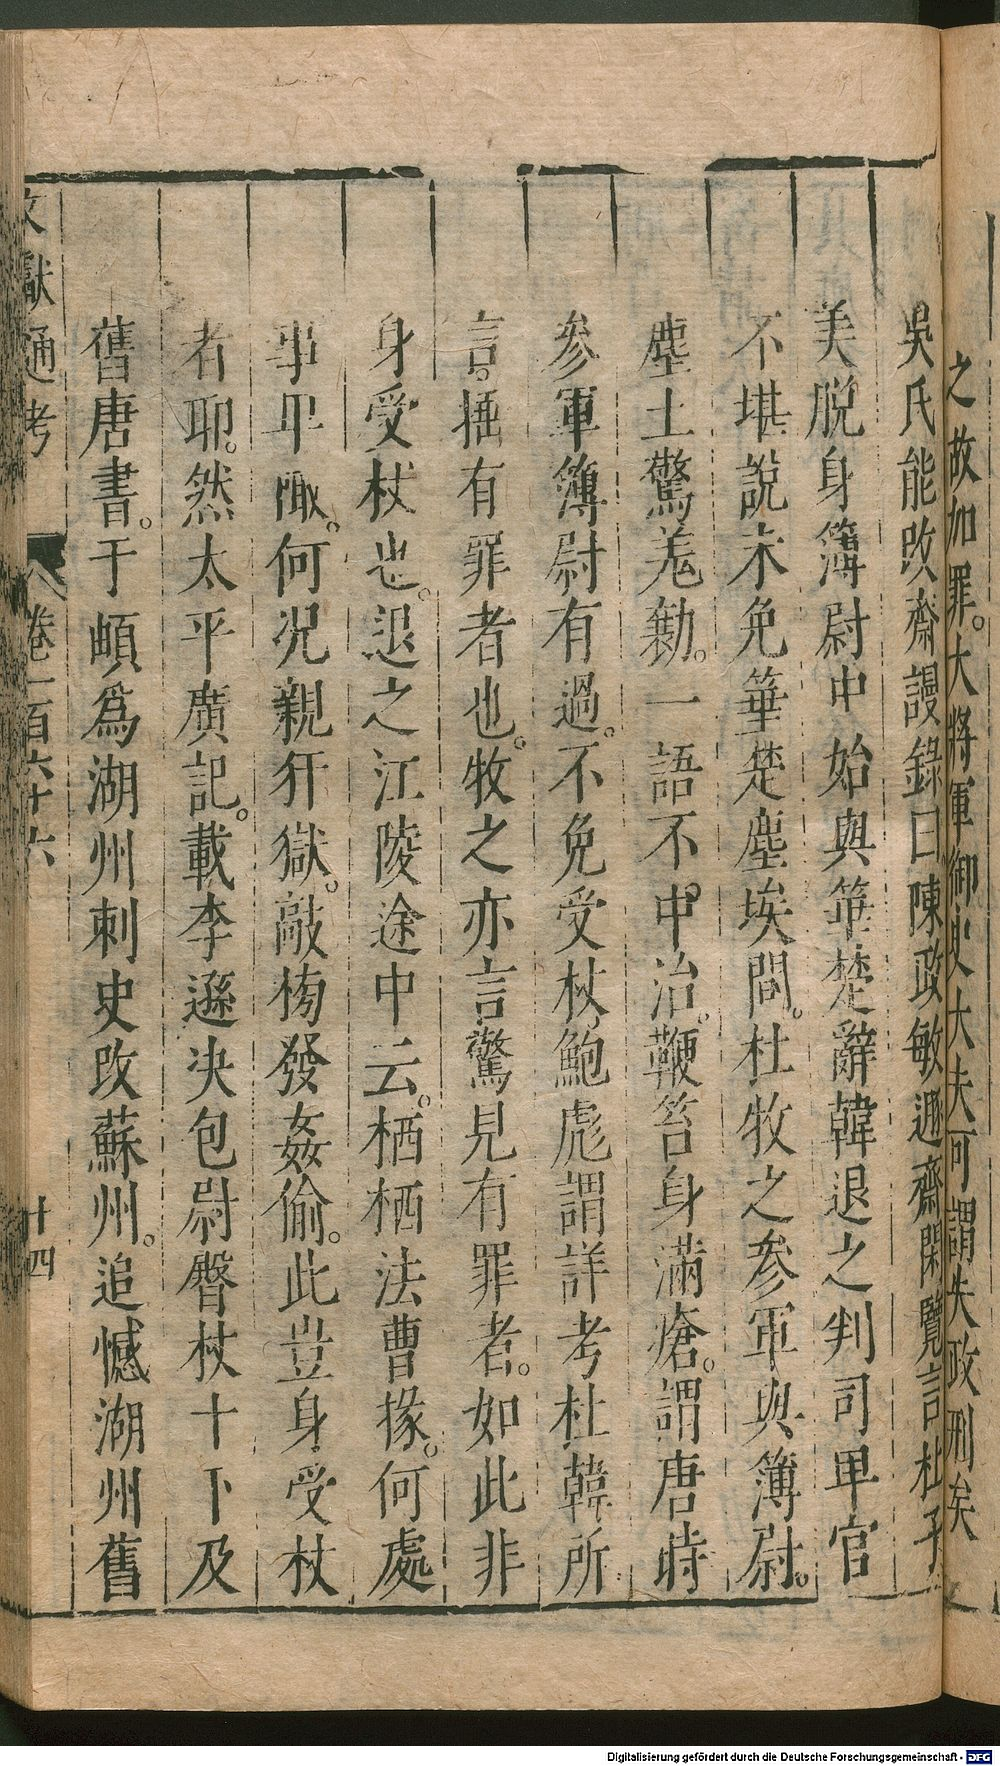 之故加罪。大將軍御史大夫可謂失政刑矣
吳氏能改齋謾錄曰陳政敏遯齋閑覽言杜子
美脫身簿尉中始與箠楚辭韓退之判司卑官
不堪說未免箠楚塵埃間。杜牧之參軍與簿尉。
塵土驚羌勷。一語不中治。鞭笞身滿瘡。謂唐時
參軍簿尉有過。不免受杖。鮑彪謂詳考杜韓所
言。捶有罪者也。牧之亦言驚見有罪者。如此非
身受杖也。退之江陵途中云。栖栖法曹掾。何處
事卑陬。何況親犴獄。敲搒發姦偷。此豈身受杖
者耶。然太平廣記。載李遜決包尉臀杖十下及
舊唐書。于頔爲湖州刺史改蘇州。追憾湖州舊
文獻通考 卷一百六十六 十四
Digitalisierung gefördert durch die Deutsche Forschungsgemeinschaft - DFG